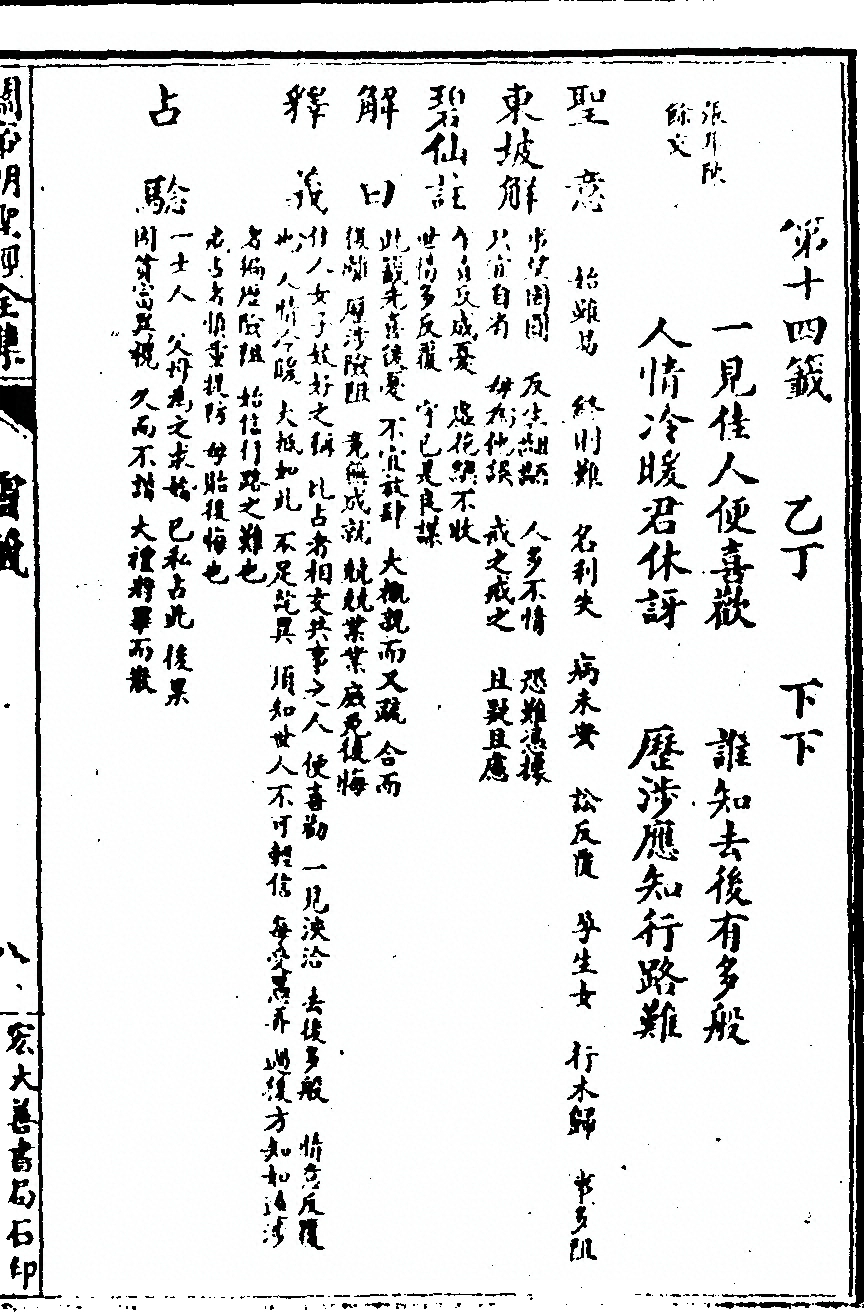 第十四籤　乙丁　下下
一見佳人便喜歡　誰知去後有多般
人情冷暖君休訝　歷涉應知行路難
餘文
聖意　始雖易　終則難　名利失　病未安　訟反覆　孕生女　行未歸　事多阻
東坡解　事望團圓　反生齟齬　人多不情　恐難憑據
只宜自省　毋為他誤　戒之戒之　且疑且慮
碧仙註　午喜反成憂　虛花謾不收
世情多反覆　守己是良謀
解曰　此籤先喜後憂　不宜放肆　大概親而又疏　合而
復離　歷涉險阻　竟無成就　兢兢業業　庶免後悔
釋義　佳人女子姣好之稱　比占者相交共事之人　便喜歡　一見浹洽　去後多般　情意反覆
也　人情冷暖　大抵如此　不足詫異　須知世人不可輕信　每受愚弄　過後方知如遠涉
者編歷險阻　始信行路之難也
者占者慎重提防　毋貽後悔也
占驗　一士人　父母為之求婚　已私占此　後果
因貧富異視　久而不諧　大禮將畢而散
關帝明聖經全集
八
宏大善書局石印